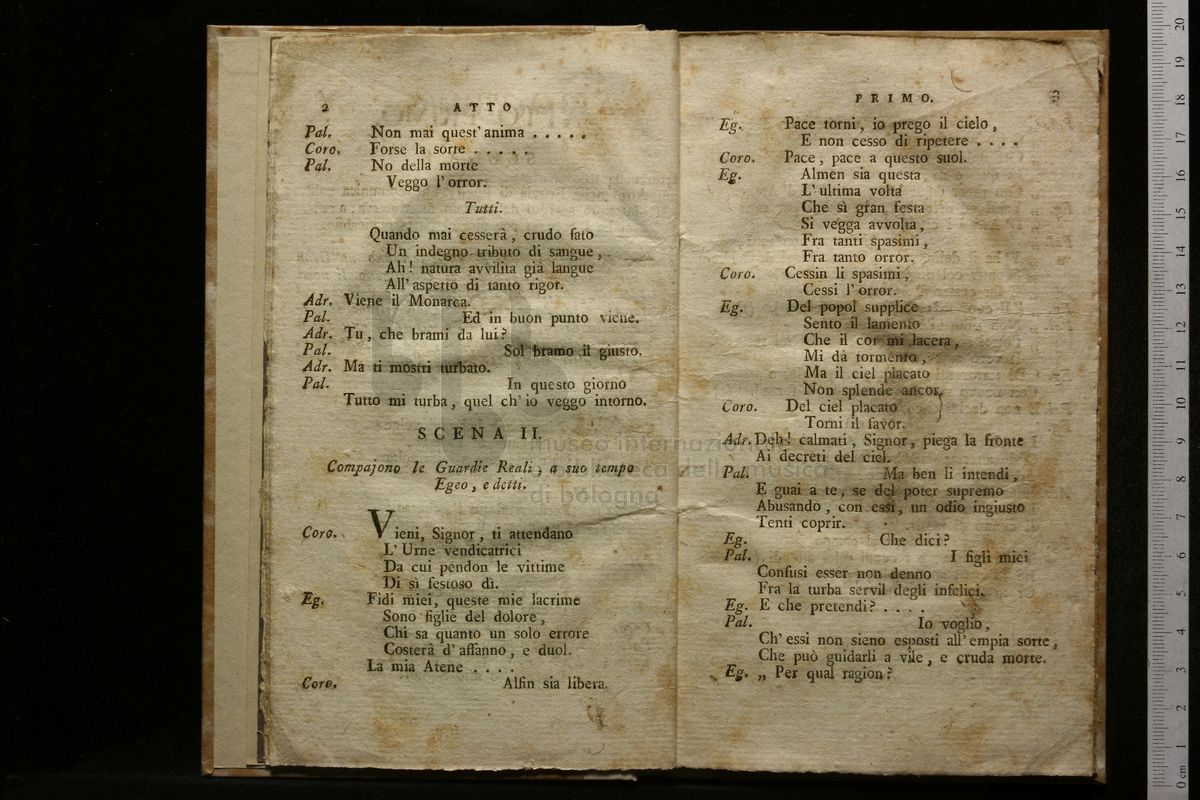 2 ATTO
Pal. Non mai quest' anima . . . . .
Coro. Forse la sorte . . . . .
Pal. No della morte
Veggo l' orror.
Tutti.
Quando mai cesserà, crudo fato
Un indegno tributo di sangue,
Ah! natura avvilita già langue
All' aspetto di tanto rigor.
Adr. Viene il Monarca.
Pal. Ed in buon punto viene.
Adr. Tu, che brami da lui?
Pal. Sol bramo il giusto.
Adr. Ma ti mostri turbato.
Pal. In questo giorno
Tutto mi turba, quel ch' io veggo intorno.
SCENA II.
Compajono le Guardie Reali, a suo tempo
Egeo, e detti.
Coro. Vieni, Signor, ti attendano
L' Urne vendicatrici
Da cui pendon le vittime
Di sì festoso dì.
Eg. Fidi miei, queste mie lacrime
Sono figlie del dolore,
Chi sa quanto un solo errore
Costerà d' affanno, e duol.
La mia Atene . . . .
Coro. Alfin sia libera.
PRIMO. 3
Eg. Pace torni, io prego il cielo,
E non cesso di ripetere . . . .
Coro. Pace, pace a questo suol.
Eg. Almen sia questa
L' ultima volta
Che sì gran festa
Si vegga avvolta,
Fra tanti spasimi,
Fra tanto orror.
Coro. Cessin li spasimi,
Cessi l' orror.
Eg. Del popol supplice
Sento il lamento
Che il cor mi lacera,
Mi dà tormento,
Ma il ciel placato
Non splende ancor.
Coro. Del ciel placato
Torni il favor.
Adr. Deh! calmati, Signor, piega la fronte
Ai decreti del ciel.
Pal. Ma ben li intendi,
E guai a te, se del poter supremo
Abusando, con essi, un odio ingiusto
Tenti coprir.
Eg. Che dici?
Pal. I figli miei
Confusi esser non denno
Fra la turba servil degli infelici.
Eg. E che pretendi? . . . .
Pal. Io voglio,
Ch' essi non sieno esposti all' empia sorte,
Che può guidarli a vile, e cruda morte.
Eg. „ Per qual ragion?
museo internazionale
biblioteca della musica
di bologna
0 cm 1 2 3 4 5 6 7 8 9 10 11 12 13 14 15 16 17 18 19 20